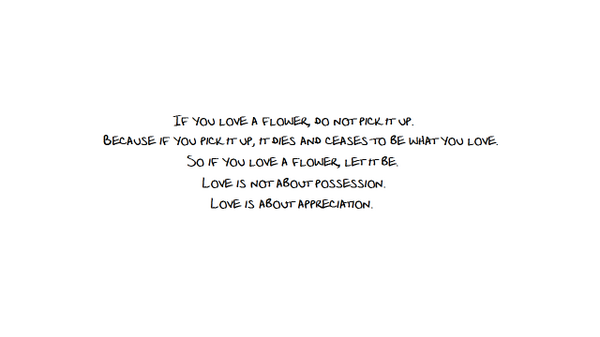 If you love a flower, do not pick it up.
Because if you pick it up, it dies and ceases to be what you love.
So if you love a flower, let it be.
Love is not about possession.
Love is about appreciation.